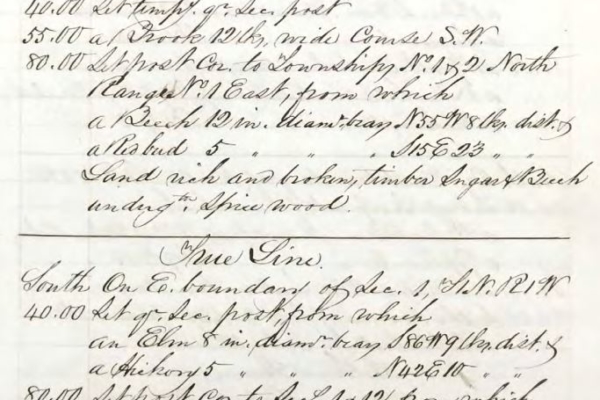 40.00 Set temp.y qr. Sec. post
55.00 a Brook 12 lks. wide Course S.W.
80.00 Set post Cor. to Townships No. 1 & 2 North
Ranges No. 1 East, from which
a Beech 12 in. diam.r bears N55W 8 lks. dist. &
a Redbud 5 " " " S15E 23 " "
Land rich and broken, timber Sugar & Beech
underg.th Spice wood.
True Line.
South On E. boundary of Sec. 1, T1N. R1W
40.00 Set qr. Sec. post, from which
an Elm 8 in. diam.r bears S86W 9 lks. dist. &
a Hikory 5 " " " N42E 10 " "
80.00 Set post Cor. to Sec.s 1 & 12 from which